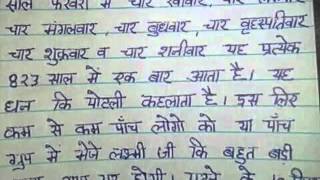 साल फरवरी में चार रविवार, चार
चार मंगलवार, चार बुधवार, चार वृहस्पतिवार
चार शुक्रवार व चार शनीवार यह प्रत्येक
823 साल में एक बार आता है। यह
धन कि पोटली कहलाता है। इस लिए
कम से कम पाँच लोगो को या पाँच
ग्रुप में भेजे लक्ष्मी जी कि बहुत बड़ी